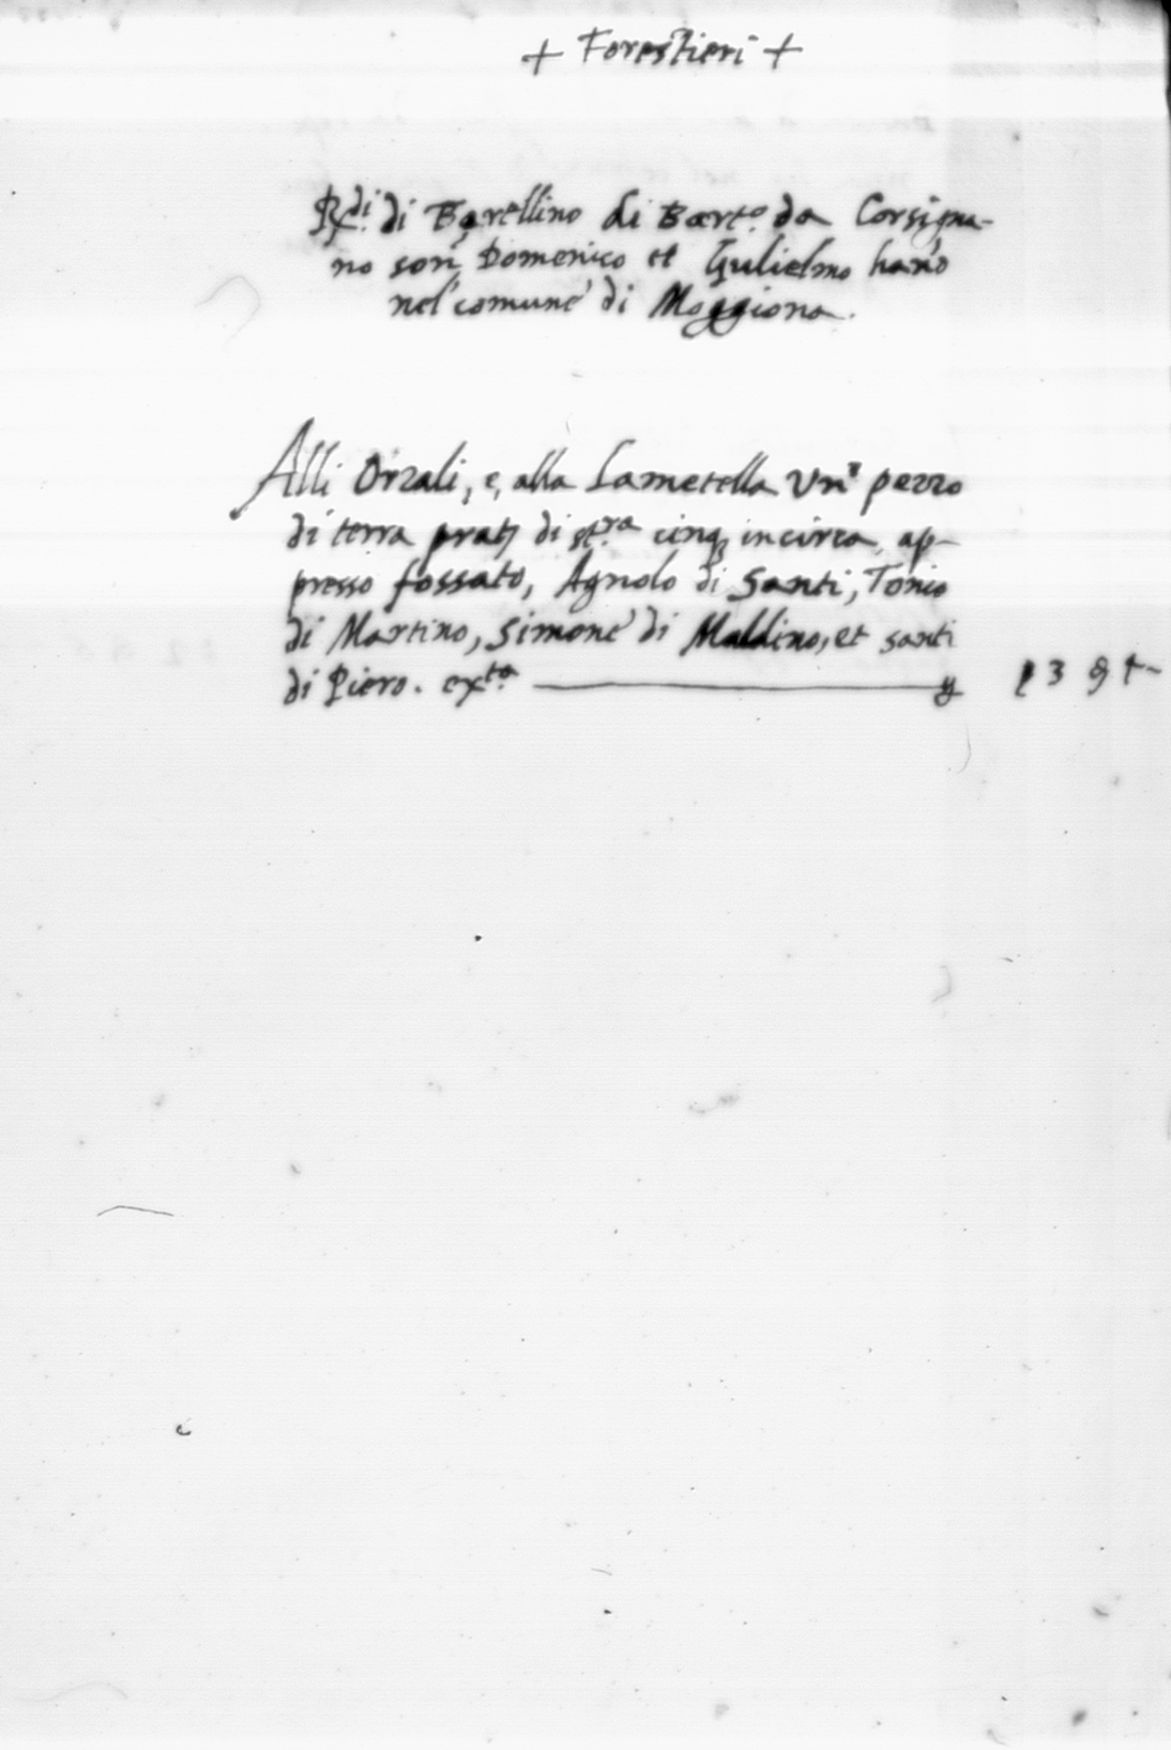 + Forestieri +
Rx.di di Barellino di Bart.o da Corsigna-
no son Domenico et Gulielmo hano
nel comune di Moggiona.
Alli Orzali, e, alla Lametella Un pezzo
di terra prat di st.ra cinq incirca, ap-
presso fossato, Agnolo di Santi, Tonio
di Martino, Simone di Maldino, et santi
di Piero. ext.a